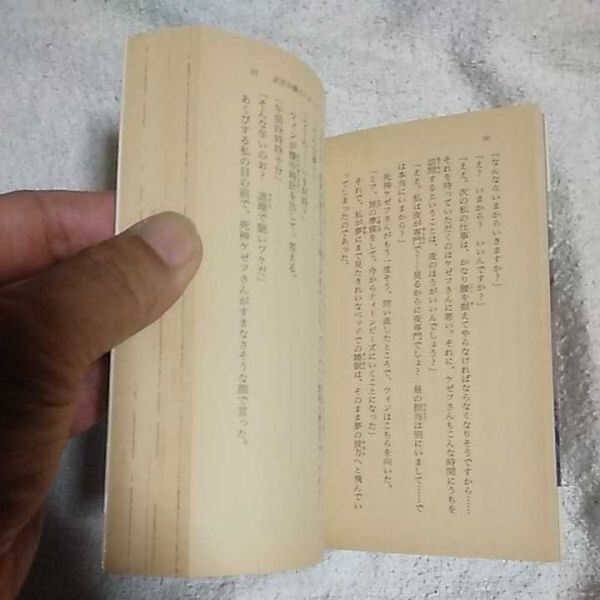 「なんならいまからいきますか？」
「え？　いまから？　いいんですか？」
「ええ。次の私の仕事は、かなり腰を据えてやらなければならなくなりそうですから……
それを待っていただくのはケゼフさんに悪い。それに、ケゼフさんもこんな時間にうちを
訪問するということは、夜のほうがいいんでしょう？」
「ええ。私は夜が専門で……見るからに夜専門でしょ？　昼の担当は別にいまして……で
は本当にいまから？」
死神ケゼフさんがもう一度そう、問い直したところで、ウィンはこちらを向いた。
「ミア、旅の準備をして。今からティーンビーズにいくことになった」
それで、私が夢にまで見たきれいなベッドでの睡眠は、そのまま夢の彼方へと飛んでい
ってしまったのであった。
ウィンが懐中時計を出して、答える。
「午前四時四十分」
「そんな早いのぉ？　道理で眠いワケだ」
あくびする私の目の前で、死神ケゼフさんがすまなさそうな顔で言った。